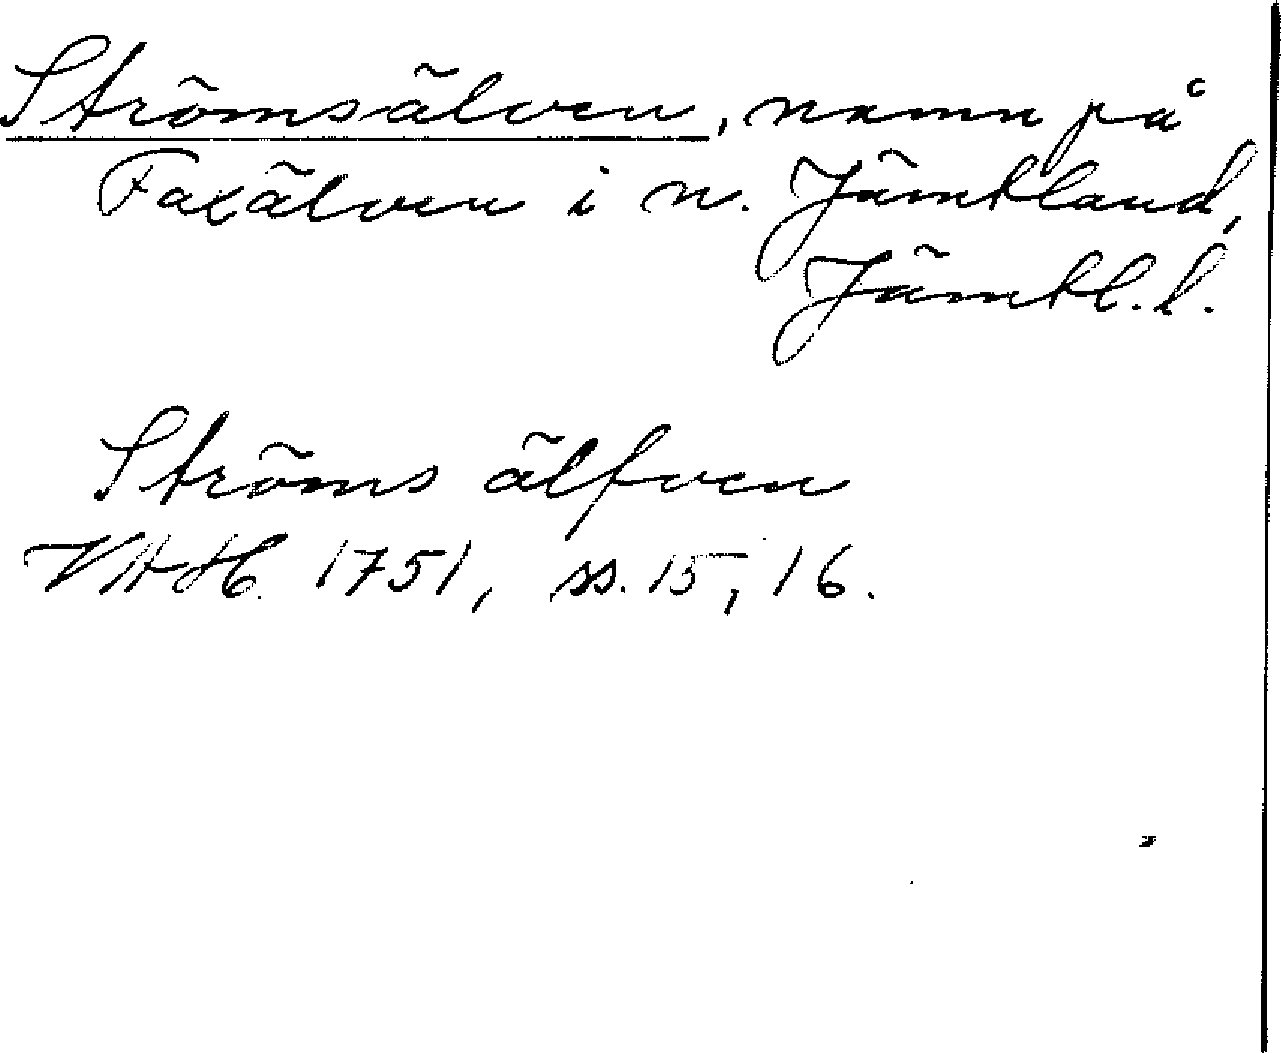 Strömsälven, namn på
Faxälven i n. Jämtland,
Jämtl. l.
Ströms älfven
VAH. 1751, ss. 15, 16.